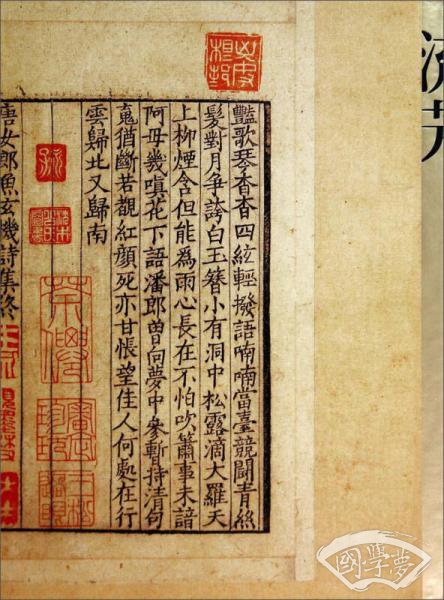 艷歌琴杳杳四絃輕撥語喃喃當臺競鬪青絲
髮對月爭誇白玉簪小有洞中松露滴大羅天
上柳煙含但能爲雨心長在不怕吹簫事未諳
阿母幾嗔花下語潘郎曾向夢中參暫持清句
䰟猶斷若覩紅顏死亦甘悵望佳人何處在行
雲歸北又歸南
唐女郎魚玄機詩集終
國學夢